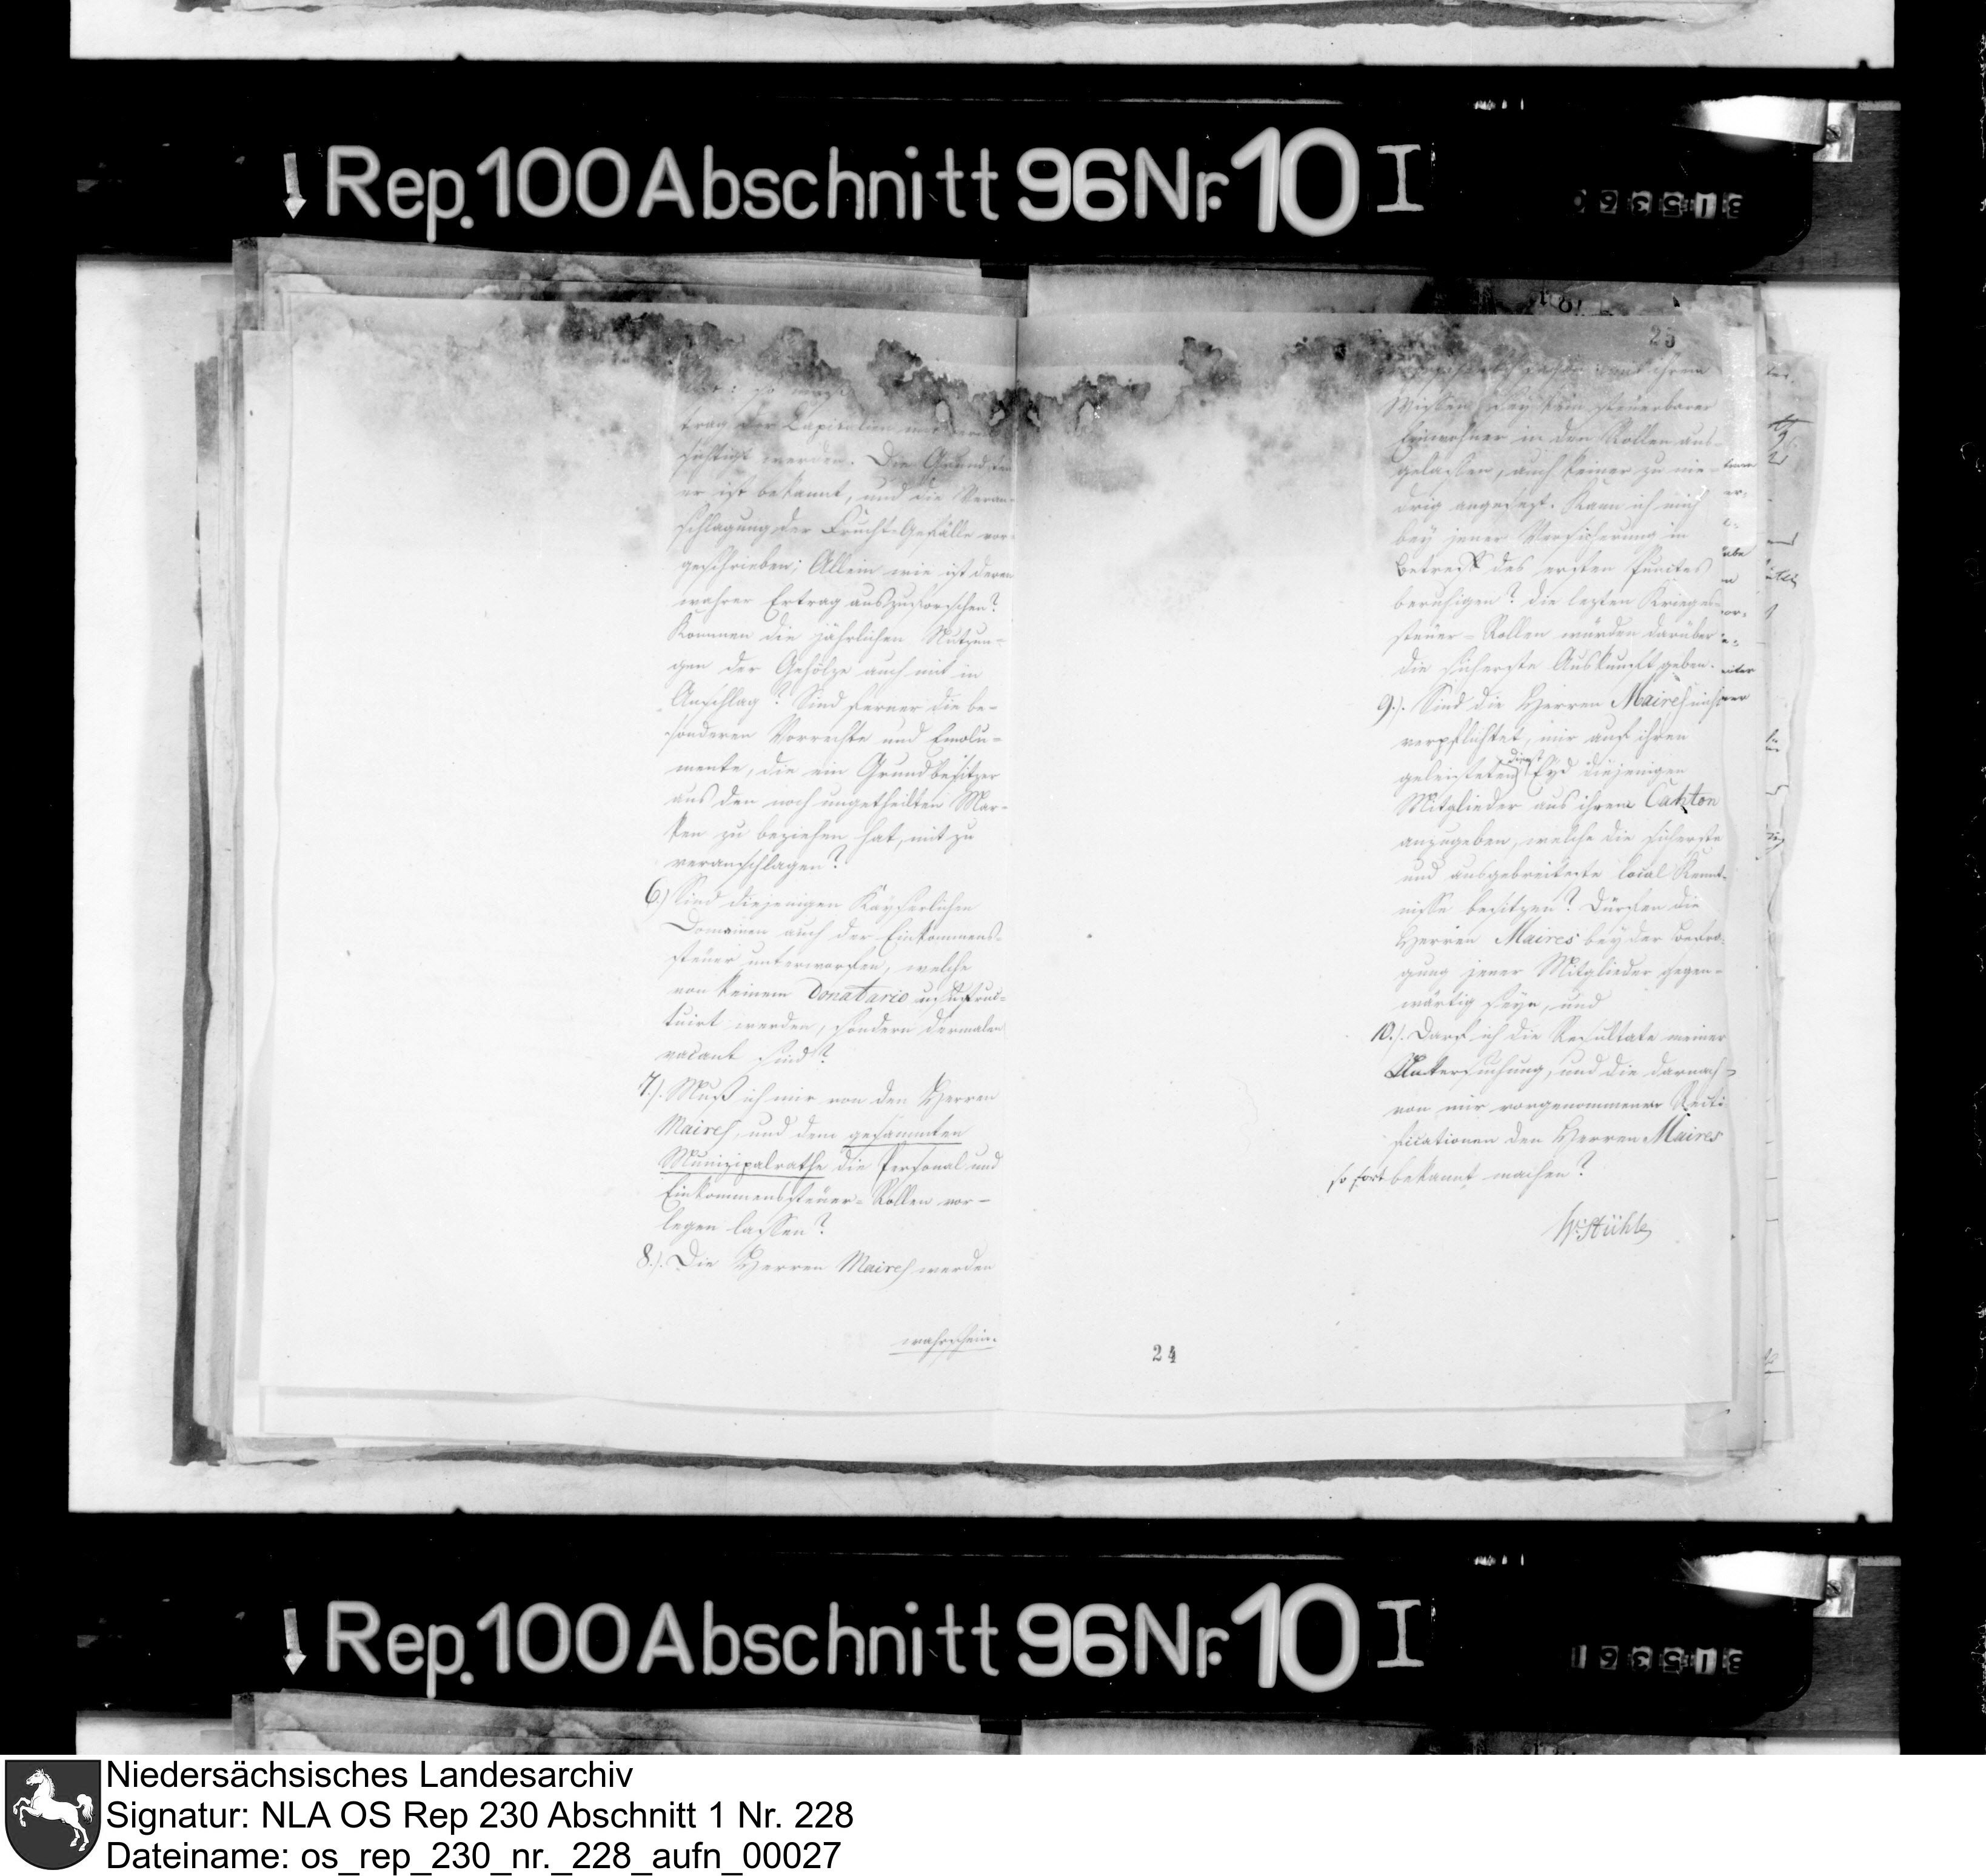 Rep. 100 Abschnitt 96 Nr. 10 I
31536
trag der Capitalien
sichtigt werden. Die Grundsteu
er ist bekannt, und die Veran-
schlagung der Frucht-Gefälle vor-
geschrieben; Allein wie ist deren
wahrer Ertrag auszuforschen?
Kommen die jährlichen Nutzun-
gen der Gehölze auch mit in
Anschlag? Sind ferner die be-
sonderen Vorrechte und Emolu-
mente, die ein Grundbesitzer
aus den noch ungetheilten Mar-
ken zu beziehen hat, mit zu
veranschlagen?
6.) Sind diejenigen Kayserlichen
Domainen auch der Einkommens-
steuer unterworfen, welche
von keinem Donatario usufruc-
tuirt werden, sondern dermalen
vacant sind?
7.) Muß ich mir von den Herren
Maires, und dem gesammten
Munizipalrathe die Personal und
Einkommenssteuer-Rollen vor-
legen lassen?
8.) Die Herren Maires werden
wahrschein-
25
ihrem
Wissen sey kein steuerbarer
Einwohner in den Rollen aus-
gelassen, auch keiner zu nie-
drig angesezt. Kann ich mich
bey jener Versicherung in
Betreff des ersten Punctes
beruhigen? die lezten Krieges-
steuer-Rollen würden darüber
die sicherste Auskunft geben.
9.) Sind die Herren Maires nicht
verpflichtet, mir auf ihren
geleisteten Dienst Eyd diejenigen
Mitglieder aus ihrem Canton
anzugeben, welche die sicherste
und ausgebreitetste local Kennt-
nisse besitzen? Dürfen die
Herren Maires bey der Befra-
gung jener Mitglieder gegen-
wärtig seyn, und
10.) Darf ich die Resultate meiner
Untersuchung, und die darnach
von mir vorgenommenen Recti-
ficationen den Herren Maires
so fort bekannt machen?
Stühle
24
Rep. 100 Abschnitt 96 Nr. 10 I
315361
Niedersächsisches Landesarchiv
Signatur: NLA OS Rep 230 Abschnitt 1 Nr. 228
Dateiname: os_rep_230_nr._228_aufn_00027